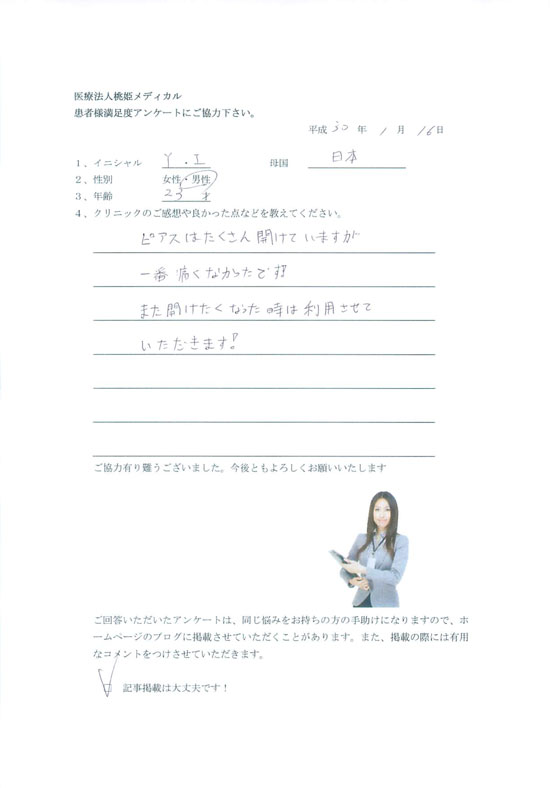 医療法人桃姫メディカル
患者様満足度アンケートにご協力下さい。
平成 30 年 1 月 16日
1、イニシャル Y.I 母国 日本
2、性別 女性・男性
3、年齢 23 才
4、クリニックのご感想や良かった点などを教えてください。
ピアスはたくさん開けていますが
一番痛くなかったです!
また開けたくなった時は利用させて
いただきます!
ご協力有り難うございました。今後ともよろしくお願いいたします
ご回答いただいたアンケートは、同じ悩みをお持ちの方の手助けになりますので、ホ
ームページのブログに掲載させていただくことがあります。また、掲載の際には有用
なコメントをつけさせていただきます。
□ 記事掲載は大丈夫です!